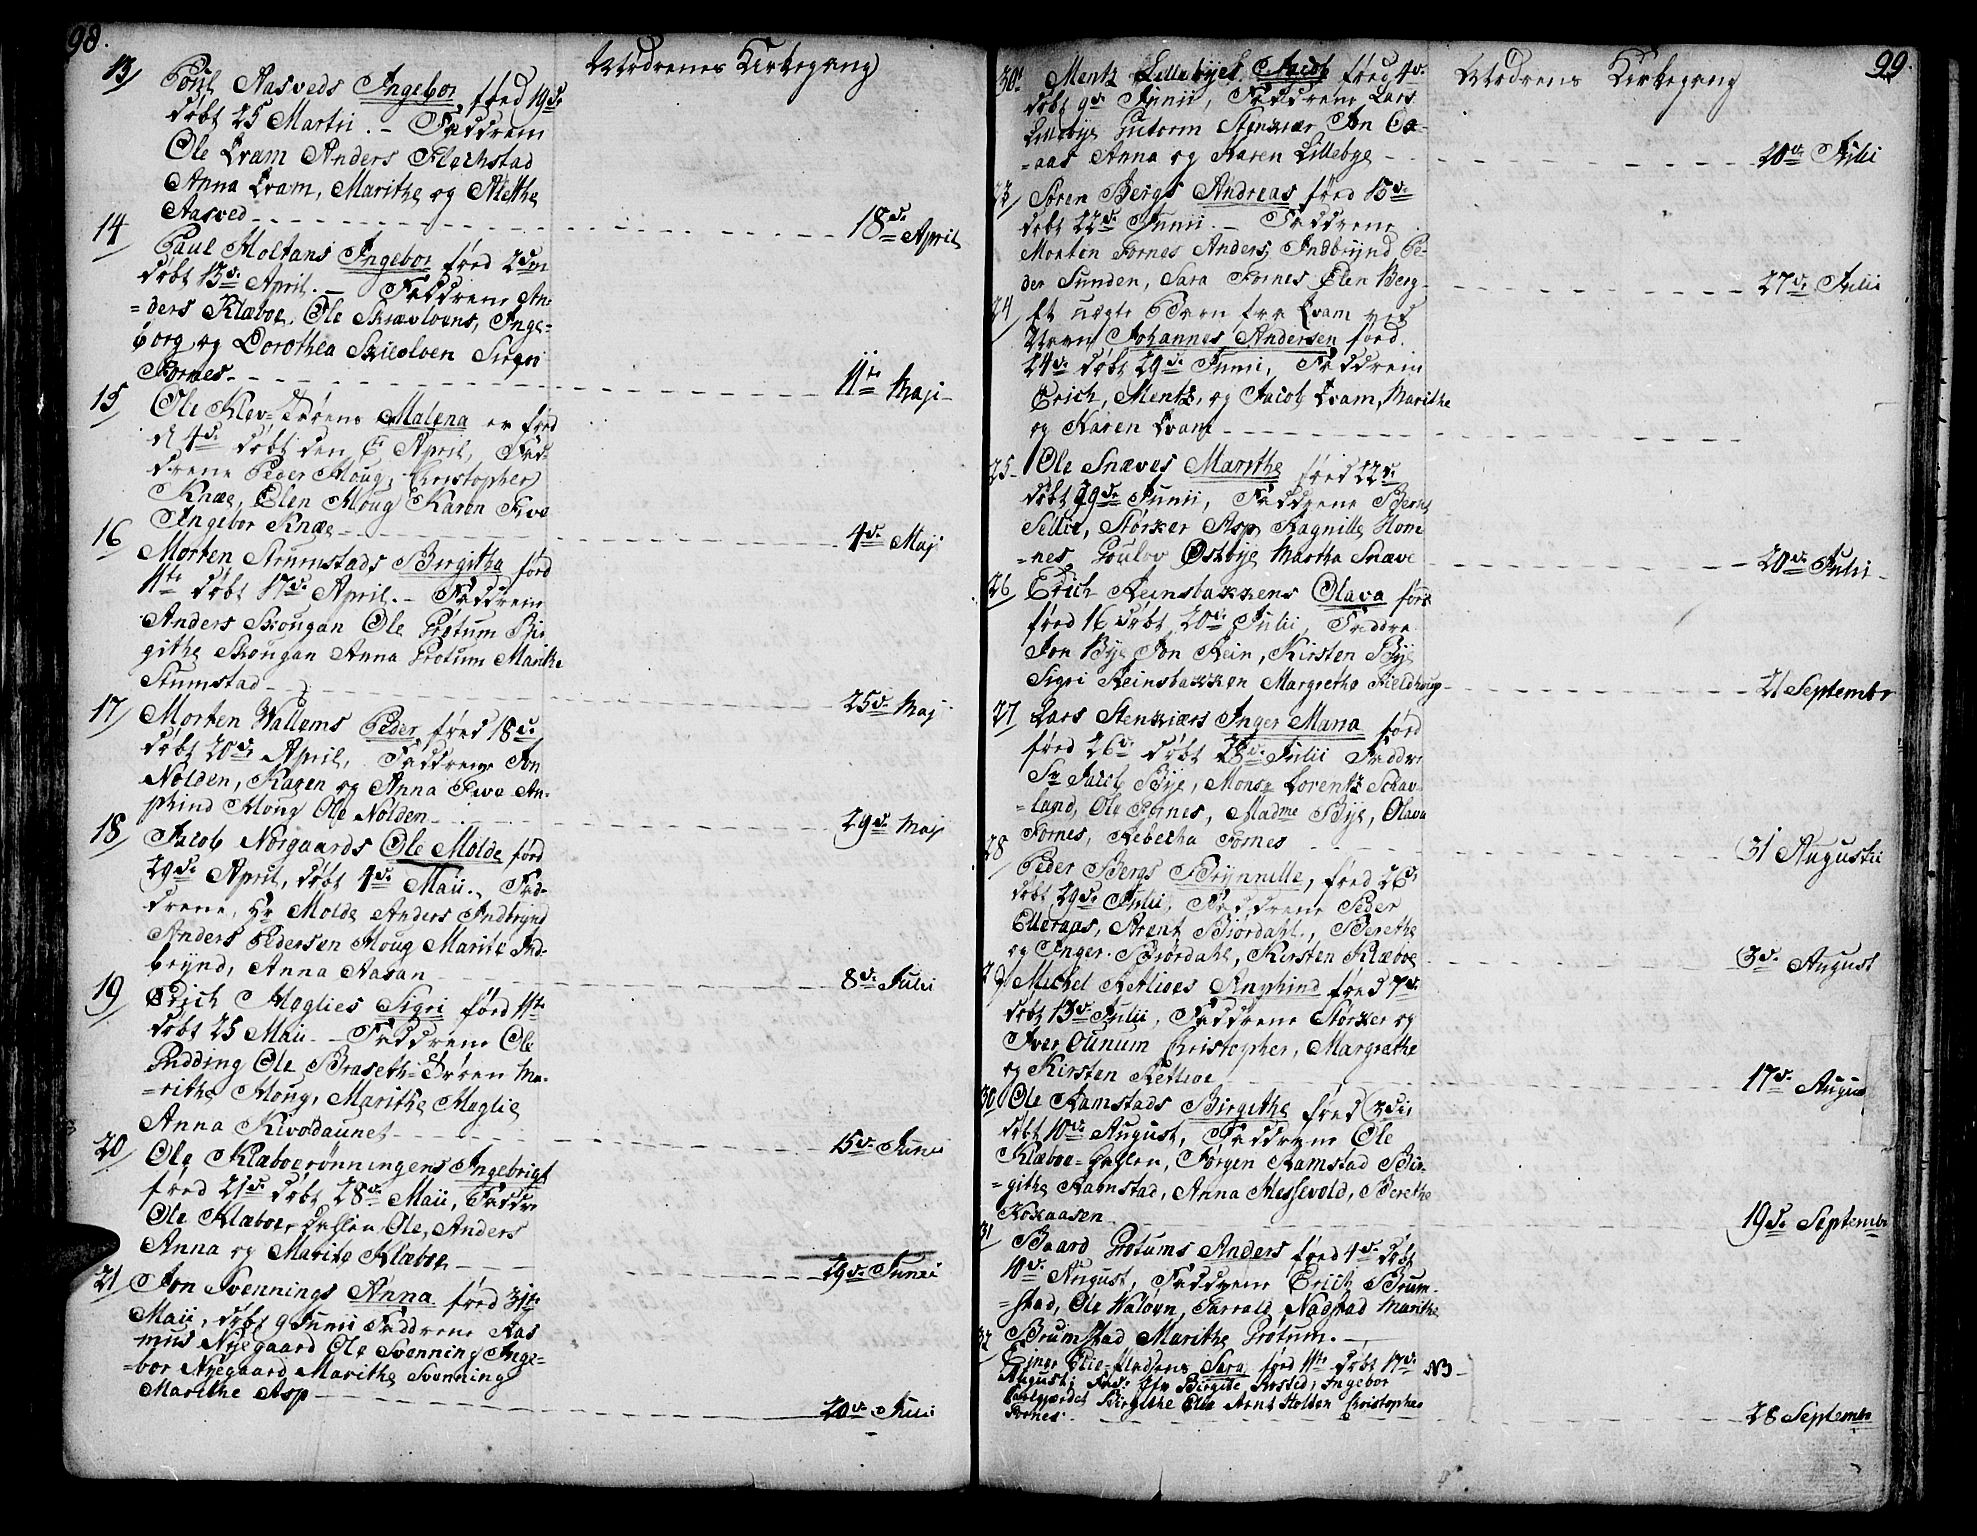 98.
Modrenes Kirkegang
13/ Poul Aasveds Ingebor, föed 19de
döbt 25 Martii. - Faddrene
Ole Qvam Anders Flechstad
Anna Qvam, Marithe og Alethe
Aasved - 18de April
14/ Paul Moltans Ingebor föed 2den
döbt 13de April. - Faddrene An-
=ders Klæboe, Ole Skievloens, Inge-
borg og Dorothea Skievloen Sirgri
Fornes - 11te Maji
15/ Ole Klev-Trøens Malena er föed
d. 4de döbt den April, Fad-
drene Peder Moug, Christopher
Knæe, Elen Moug Karen Five
Ingebor Knæe - 4de Maji
16/ Morten Strumstads Birgitha föed
11te döbt 17de April. - Faddrene
Anders Skougan Ole Protum Bir
githe Skougan Anna Protum Marithe
Stumstad - 25de Maj
17/ Morten Wallems Peder, föed 18de
döbt 20de April, Faddrene Jon
Nolden, Karen og Anna Five An-
phind Moug Ole Nolden - 29de Maji
18/ Jacob Norgaards Ole Molde föed
29de April, döbt 4de Maii. Fad-
drene, Hr Molde Anders Indbrynd
Anders Pedersen Moug Marite Ind-
brynd, Anna Aasan - 8de Julii
19/ Erich Moglies Sigri föed 11te
döbt 25 Maii - Faddrene Ole
Pudding Ole Braseth-Trøen Ma-
=rithe Moug, Marithe Moglie
Anna Kivoldaunet - 15de Junii
20/ Ole Klæboerönningens Ingebrigt
föed 21de döbt 28de Maii, Faddre
Ole Klæboe, Ole, Anders
Anna og Marite Klæboe - 29de Junii
21/ Jon Svennings Anna föed 31te
Maii, döbt 9 Junii Faddrene Ras
mus Nyegaard Ole Svenning Inge-
=bor Nyegaard Marithe Svenning
Marithe Asp - 20de Julii
99.
Modrens Kirkegang
Mentz Lillebyes Jacob föed 4de
döbt 9de Junii, Faddrene Lars
Lillebye Gutorm Stenkiær Jon Ea-
=aas Anna og Karen Lillebye - 20de Julii
23/ Sören Bergs Andreas föed 15de
döbt 22de Junii. - Faddrene
Morten Fornes Anders Indbrynd Pe-
der Sunden, Sara Fornes Elen Berg - 27de Julii
24/ Et uægte Barn fra Qvam ved
Navn Johannes Andersen föed
24de döbt 29de Junii, Faddrene
Erich, Mentz, og Jacob Qvam, Marithe
og Karen Qvam -
25 Ole Snæves Marithe föed 22de
döbt 29de Junii, Faddrene Bernt
Sellie, Störker Asp Ragnille Hom
=nes, Goulov Östbye Martha Snæve - 20de Julii -
26/ Erich Reinsbakkens Olava föed
föed 16 döbt 20de Julii, Faddre
Jon Bye Jon Rein, Kirsten Bye
Sigri Reinsbakken Margrethe Fieldhoug - 21 Septembr
27/ Lars Stenkiærs Inger Maria föed
föed 26de döbt 28de Julii Faddre
Sr Jacob Bye, Monsr Lorentz Schav-
=land, Ole Fornes, Madme Bye, Olava
Fornes, Rebecha Fornes - 31 Augusti
28/ Peder Bergs Brynnille, föed 26de
döbt 29de Julii, Faddrene Peder
Elleraas, Arent Biördahl., Berethe
og Inger Biördahl, Kirsten Klæboe - 3de August
29 Michel Retlioes Anphind föed 7de
döbt 13de Julii, Faddrene Störker og
Iver Olinum Christopher, Margrethe
og Kirsten Retlioe - 17de August
30 Ole Ramstads Birgithe föed 3die
döbt 10de August, Faddrene Ole
Klæboe-hallen, Jörgen Ramstad Bir-
=githe Ramstad, Anna Messevold, Berethe
Kokaasen - 19de Septembr
31/ Baard Protums Anders föed 4de döbt
10de August, Faddrene Erich Brum-
=stad, Ole Waløyn, Tarrald Nadstad Marithe
Brumstad Marithe Protum. -
32/ Einer Elie-Pladsens Sara föed 11te döbt 17de NB-
August; Fad: Jfr Birgite Rosted; Ingebor
Birgithe Elie Arnt Holden Christopher
Fornes. - 28 Septembr